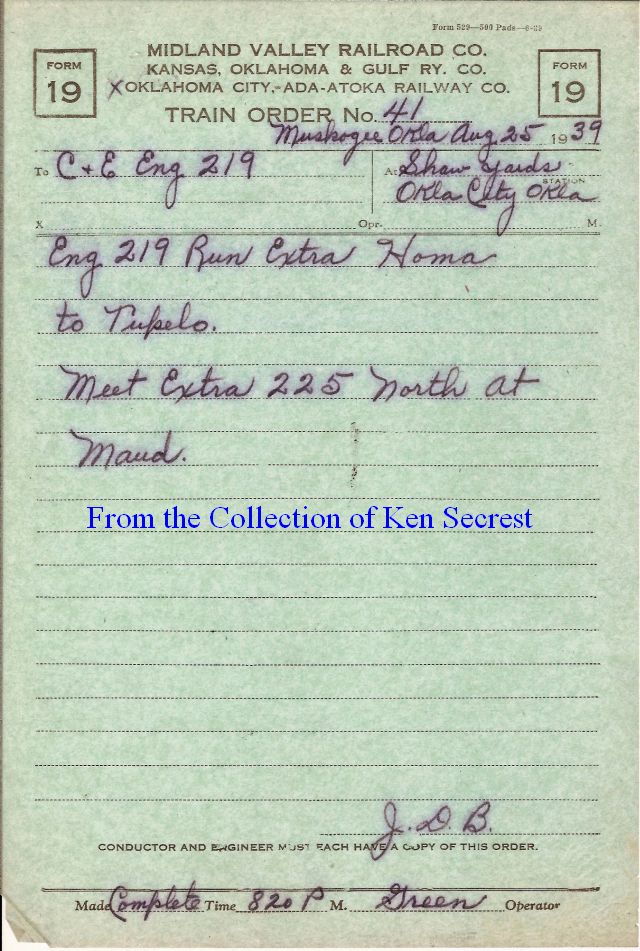 Form 529—500 Pads—6-39
MIDLAND VALLEY RAILROAD CO.
KANSAS, OKLAHOMA & GULF RY. CO.
X OKLAHOMA CITY-ADA-ATOKA RAILWAY CO.
FORM 19
FORM 19
TRAIN ORDER No. 41
Muskogee Okla Aug 25 1939
To C + E Eng 219
At Shaw Yards
STATION
Okla City Okla
X Opr. M.
Eng 219 Run Extra Homa
to Tupelo.
Meet Extra 225 North at
Maud.
From the Collection of Ken Secrest
J. D. B.
CONDUCTOR AND ENGINEER MUST EACH HAVE A COPY OF THIS ORDER.
Made Complete Time 820 P M. Green Operator